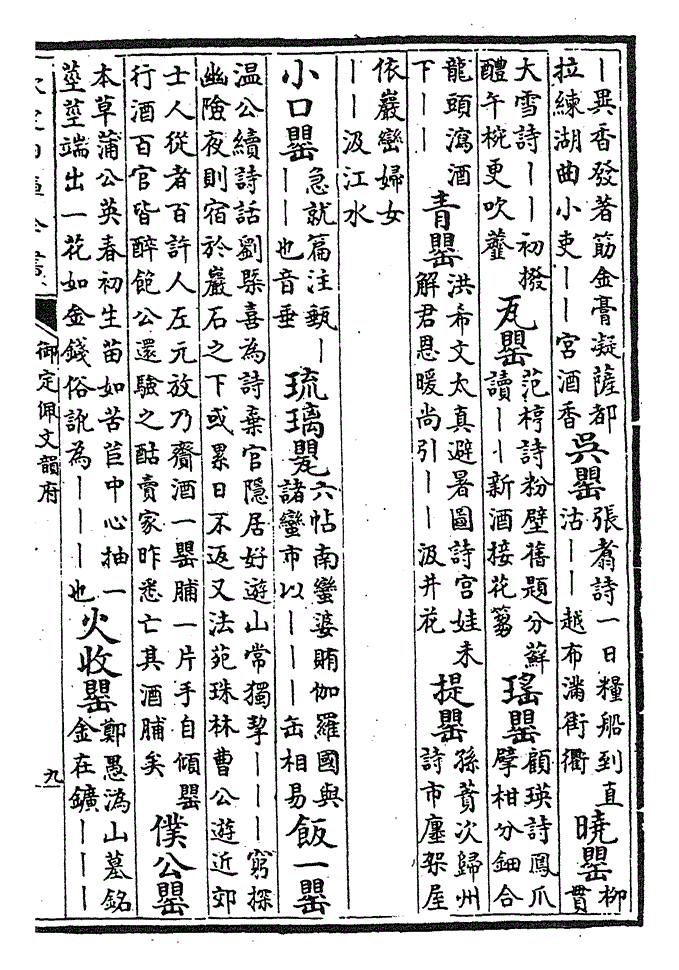 ｜異香發著筯金膏凝薩都
拉練湖曲小吏｜｜宮酒香
吳罌
張翥詩一日糧船到直
沽｜｜越布滿街衢
曉罌
柳
貫
大雪詩｜｜初撥
醴午椀更吹虀
瓦罌
范梈詩粉壁舊題分蘇
讀｜｜新酒接花篘
瑤罌
顧瑛詩鳳爪
擘柑分鈿合
龍頭瀉酒
下｜｜
青罌
洪希文太真避暑圖詩宮娃未
解君恩暖尚引｜｜汲井花
提罌
孫蕡次歸州
詩市廛架屋
依巖巒婦女
｜｜汲江水
小口罌
急就篇注甀｜
｜｜也音垂
琉璃罌
六帖南蠻婆賄伽羅國與
諸蠻市以｜｜｜缶相易
飯一罌
温公續詩話劉槩喜為詩棄官隱居好遊山常獨挈｜｜｜窮探
幽險夜則宿於巖石之下或累日不返又法苑珠林曹公遊近郊
士人從者百許人左元放乃齎酒一罌脯一片手自傾罌
行酒百官皆醉飽公還驗之酤賣家昨悉亡其酒脯矣
僕公罌
本草蒲公英春初生苗如苦苣中心抽一
莖莖端出一花如金錢俗訛為｜｜｜也
火收罌
鄭愚溈山墓銘
金在鑛｜｜｜
御定佩文韻府
九